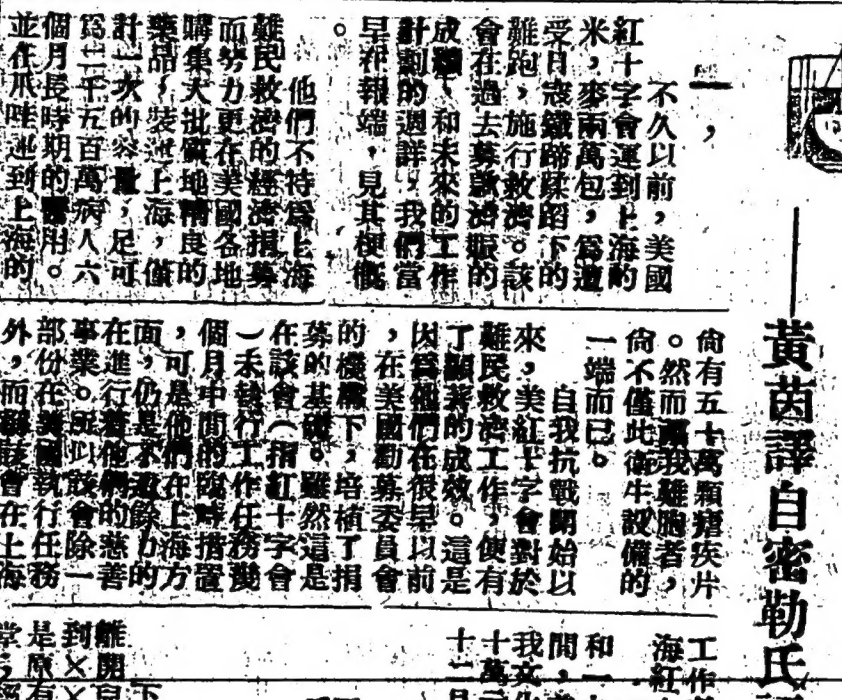 黃茵譯自密勒氏
一，
不久以前，美國
紅十字會運到上海的
米，麥兩萬包，爲遭
受日寇鐵蹄蹂躪下的
難胞，施行救濟。該
會在過去募款濟賑的
成績，和未來的工作
計劃的週詳，我們當
早在報端，見其梗概
。
他們不特爲上海
難民救濟的經濟捐募
而努力更在美國各地
購集大批質地精良的
藥品，裝運上海，僅
計一次的容量，足可
爲二千五百萬病人六
個月長時期的醫用。
並在爪哇運到上海的
尙有五十萬顆瘧疾片
。然而關我難胞者，
尙不僅此衛生設備的
一端而已。
自我抗戰開始以
來，美紅十字會對於
難民救濟工作，便有
了顯著的成效。這是
因爲他們在很早以前
，在美國勸募委員會
的機構下，培植了捐
募的基礎。雖然這是
在該會（指紅十字會
）未執行工作任務幾
個月中間的臨時措置
，可是他們在上海方
面，仍是不遺餘力的
在進行着他們的慈善
事業。所以該會除一
部份在美國執行任務
外，而該會在上海
工作
海紅
和一
間，
我文化
十萬
十二月
下
離開
到××
是原有
堂，